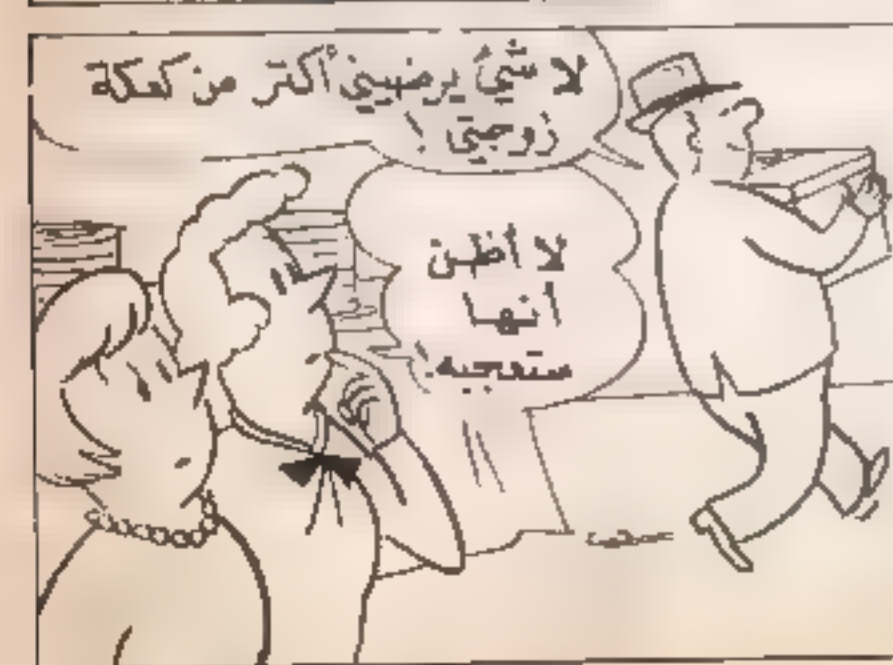 لا شيئ يرضيني أكتر من كعكة
زوجتي !
لا أظن
أنها
ستعجبه !